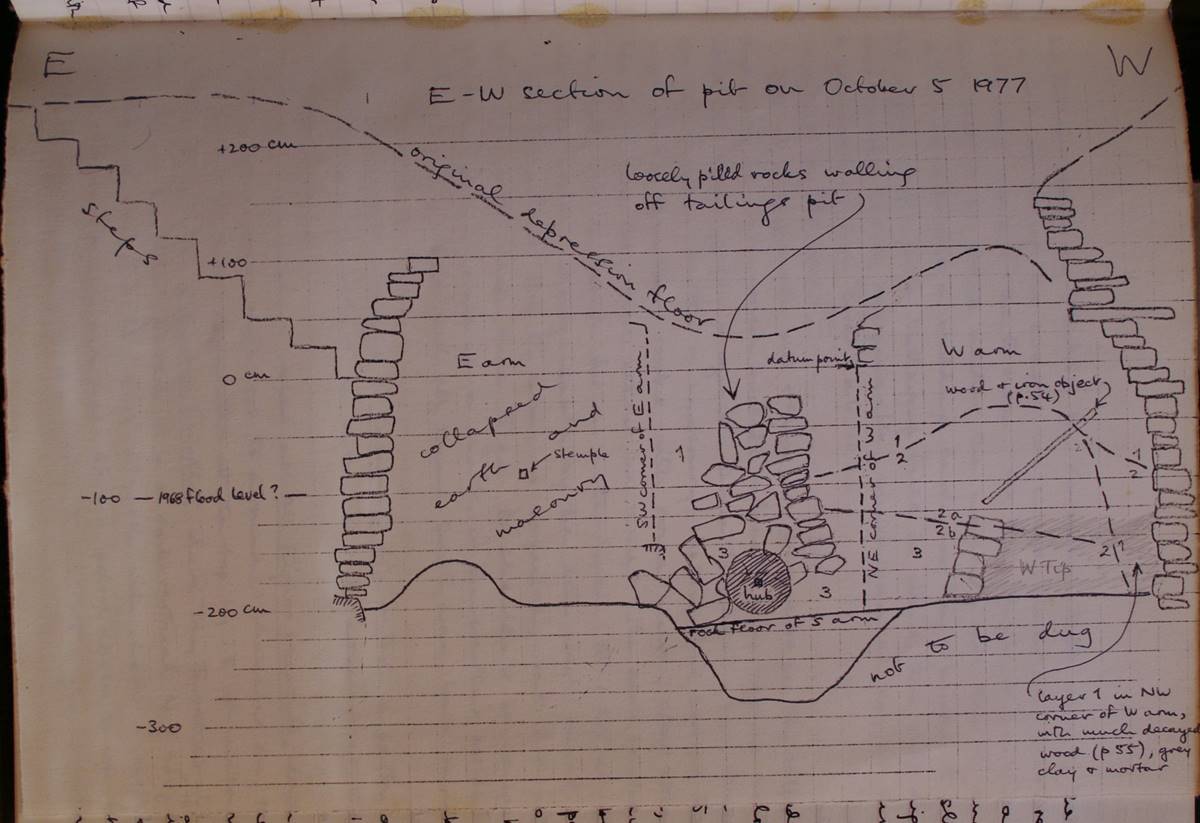 E
W
E-W section of pit on October 5 1977
+200 cm
original depression floor
loosely pilld rocks walling
off tailings pit
steps
+100
E arm
datum point
W arm
0 cm
wood + iron object
(p.54)
collapsed
and
earth
stemple
masonry
SW corner of E arm
NE corner of W arm
1
1
2
1
2
2
-100
1968 flood level?
2a
2b
3
3
3
2
1
hub
W Tip
-200 cm
rock floor of S arm
not to be dug
-300
layer 1 in NW
corner of W arm,
with much decayed
wood (p 55), grey
clay + mortar